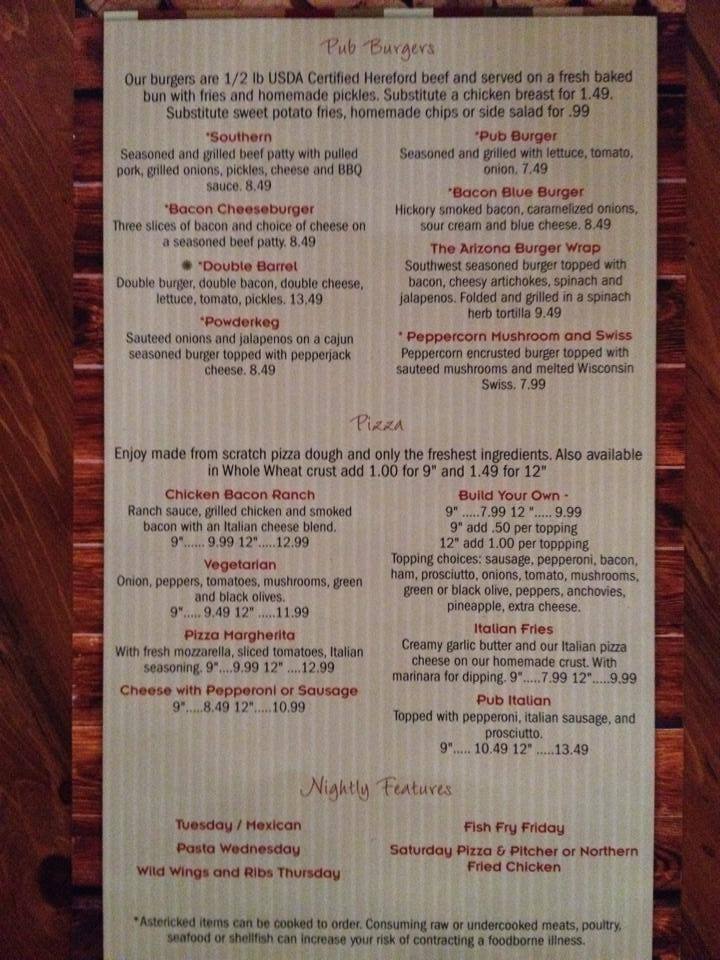 Pub Burgers
Our burgers are 1/2 lb USDA Certified Hereford beef and served on a fresh baked
bun with fries and homemade pickles. Substitute a chicken breast for 1.49.
Substitute sweet potato fries, homemade chips or side salad for .99
*Southern
Seasoned and grilled beef patty with pulled
pork, grilled onions, pickles, cheese and BBQ
sauce. 8.49
*Bacon Cheeseburger
Three slices of bacon and choice of cheese on
a seasoned beef patty. 8.49
*Double Barrel
Double burger, double bacon, double cheese,
lettuce, tomato, pickles. 13.49
*Powderkeg
Sauteed onions and jalapenos on a cajun
seasoned burger topped with pepperjack
cheese. 8.49
*Pub Burger
Seasoned and grilled with lettuce, tomato,
onion. 7.49
*Bacon Blue Burger
Hickory smoked bacon, caramelized onions,
sour cream and blue cheese. 8.49
The Arizona Burger Wrap
Southwest seasoned burger topped with
bacon, cheesy artichokes, spinach and
jalapenos. Folded and grilled in a spinach
herb tortilla 9.49
* Peppercorn Mushroom and Swiss
Peppercorn encrusted burger topped with
sauteed mushrooms and melted Wisconsin
Swiss. 7.99
Pizza
Enjoy made from scratch pizza dough and only the freshest ingredients. Also available
in Whole Wheat crust add 1.00 for 9" and 1.49 for 12"
Chicken Bacon Ranch
Ranch sauce, grilled chicken and smoked
bacon with an Italian cheese blend.
9"...... 9.99 12".....12.99
Vegetarian
Onion, peppers, tomatoes, mushrooms, green
and black olives.
9"..... 9.49 12" .....11.99
Pizza Margherita
With fresh mozzarella, sliced tomatoes, Italian
seasoning. 9"....9.99 12" ....12.99
Cheese with Pepperoni or Sausage
9".....8.49 12".....10.99
Build Your Own -
9" .....7.99 12 "..... 9.99
9" add .50 per topping
12" add 1.00 per toppping
Topping choices: sausage, pepperoni, bacon,
ham, prosciutto, onions, tomato, mushrooms,
green or black olive, peppers, anchovies,
pineapple, extra cheese.
Italian Fries
Creamy garlic butter and our Italian pizza
cheese on our homemade crust. With
marinara for dipping. 9".....7.99 12".....9.99
Pub Italian
Topped with pepperoni, italian sausage, and
prosciutto.
9"..... 10.49 12" .....13.49
Nightly Features
Tuesday / Mexican
Pasta Wednesday
Wild Wings and Ribs Thursday
Fish Fry Friday
Saturday Pizza & Pitcher or Northern
Fried Chicken
*Astericked items can be cooked to order. Consuming raw or undercooked meats, poultry,
seafood or shellfish can increase your risk of contracting a foodborne illness.